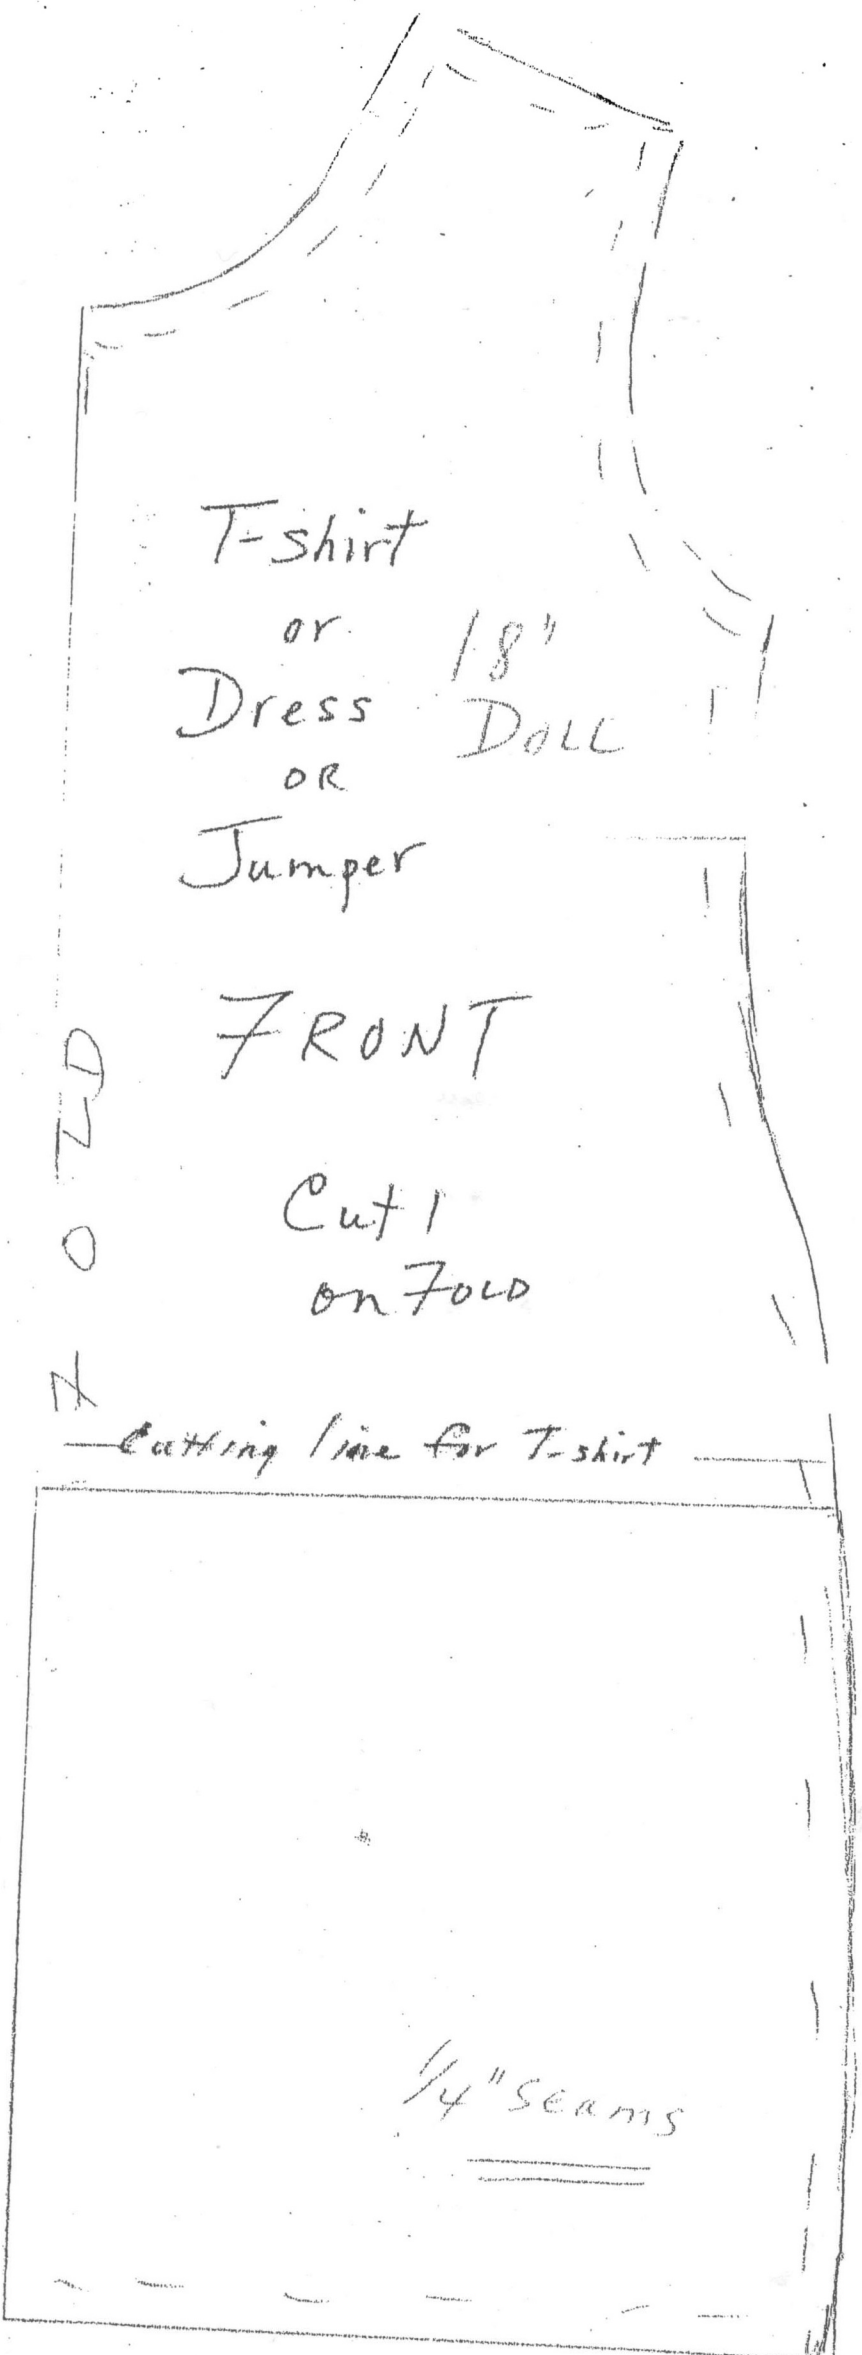 T-shirt
or
Dress
OR
Jumper
18"
DOLL
FRONT
Cut 1
on FOLD
FOLD
Cutting line for T-shirt
1/4" seams